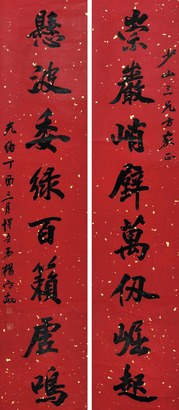 少山三兄方家正
崇巖峭壁萬仞崛起
懸波委緑百籟虛鳴
光緒丁酉三月惺吾弟楊守敬